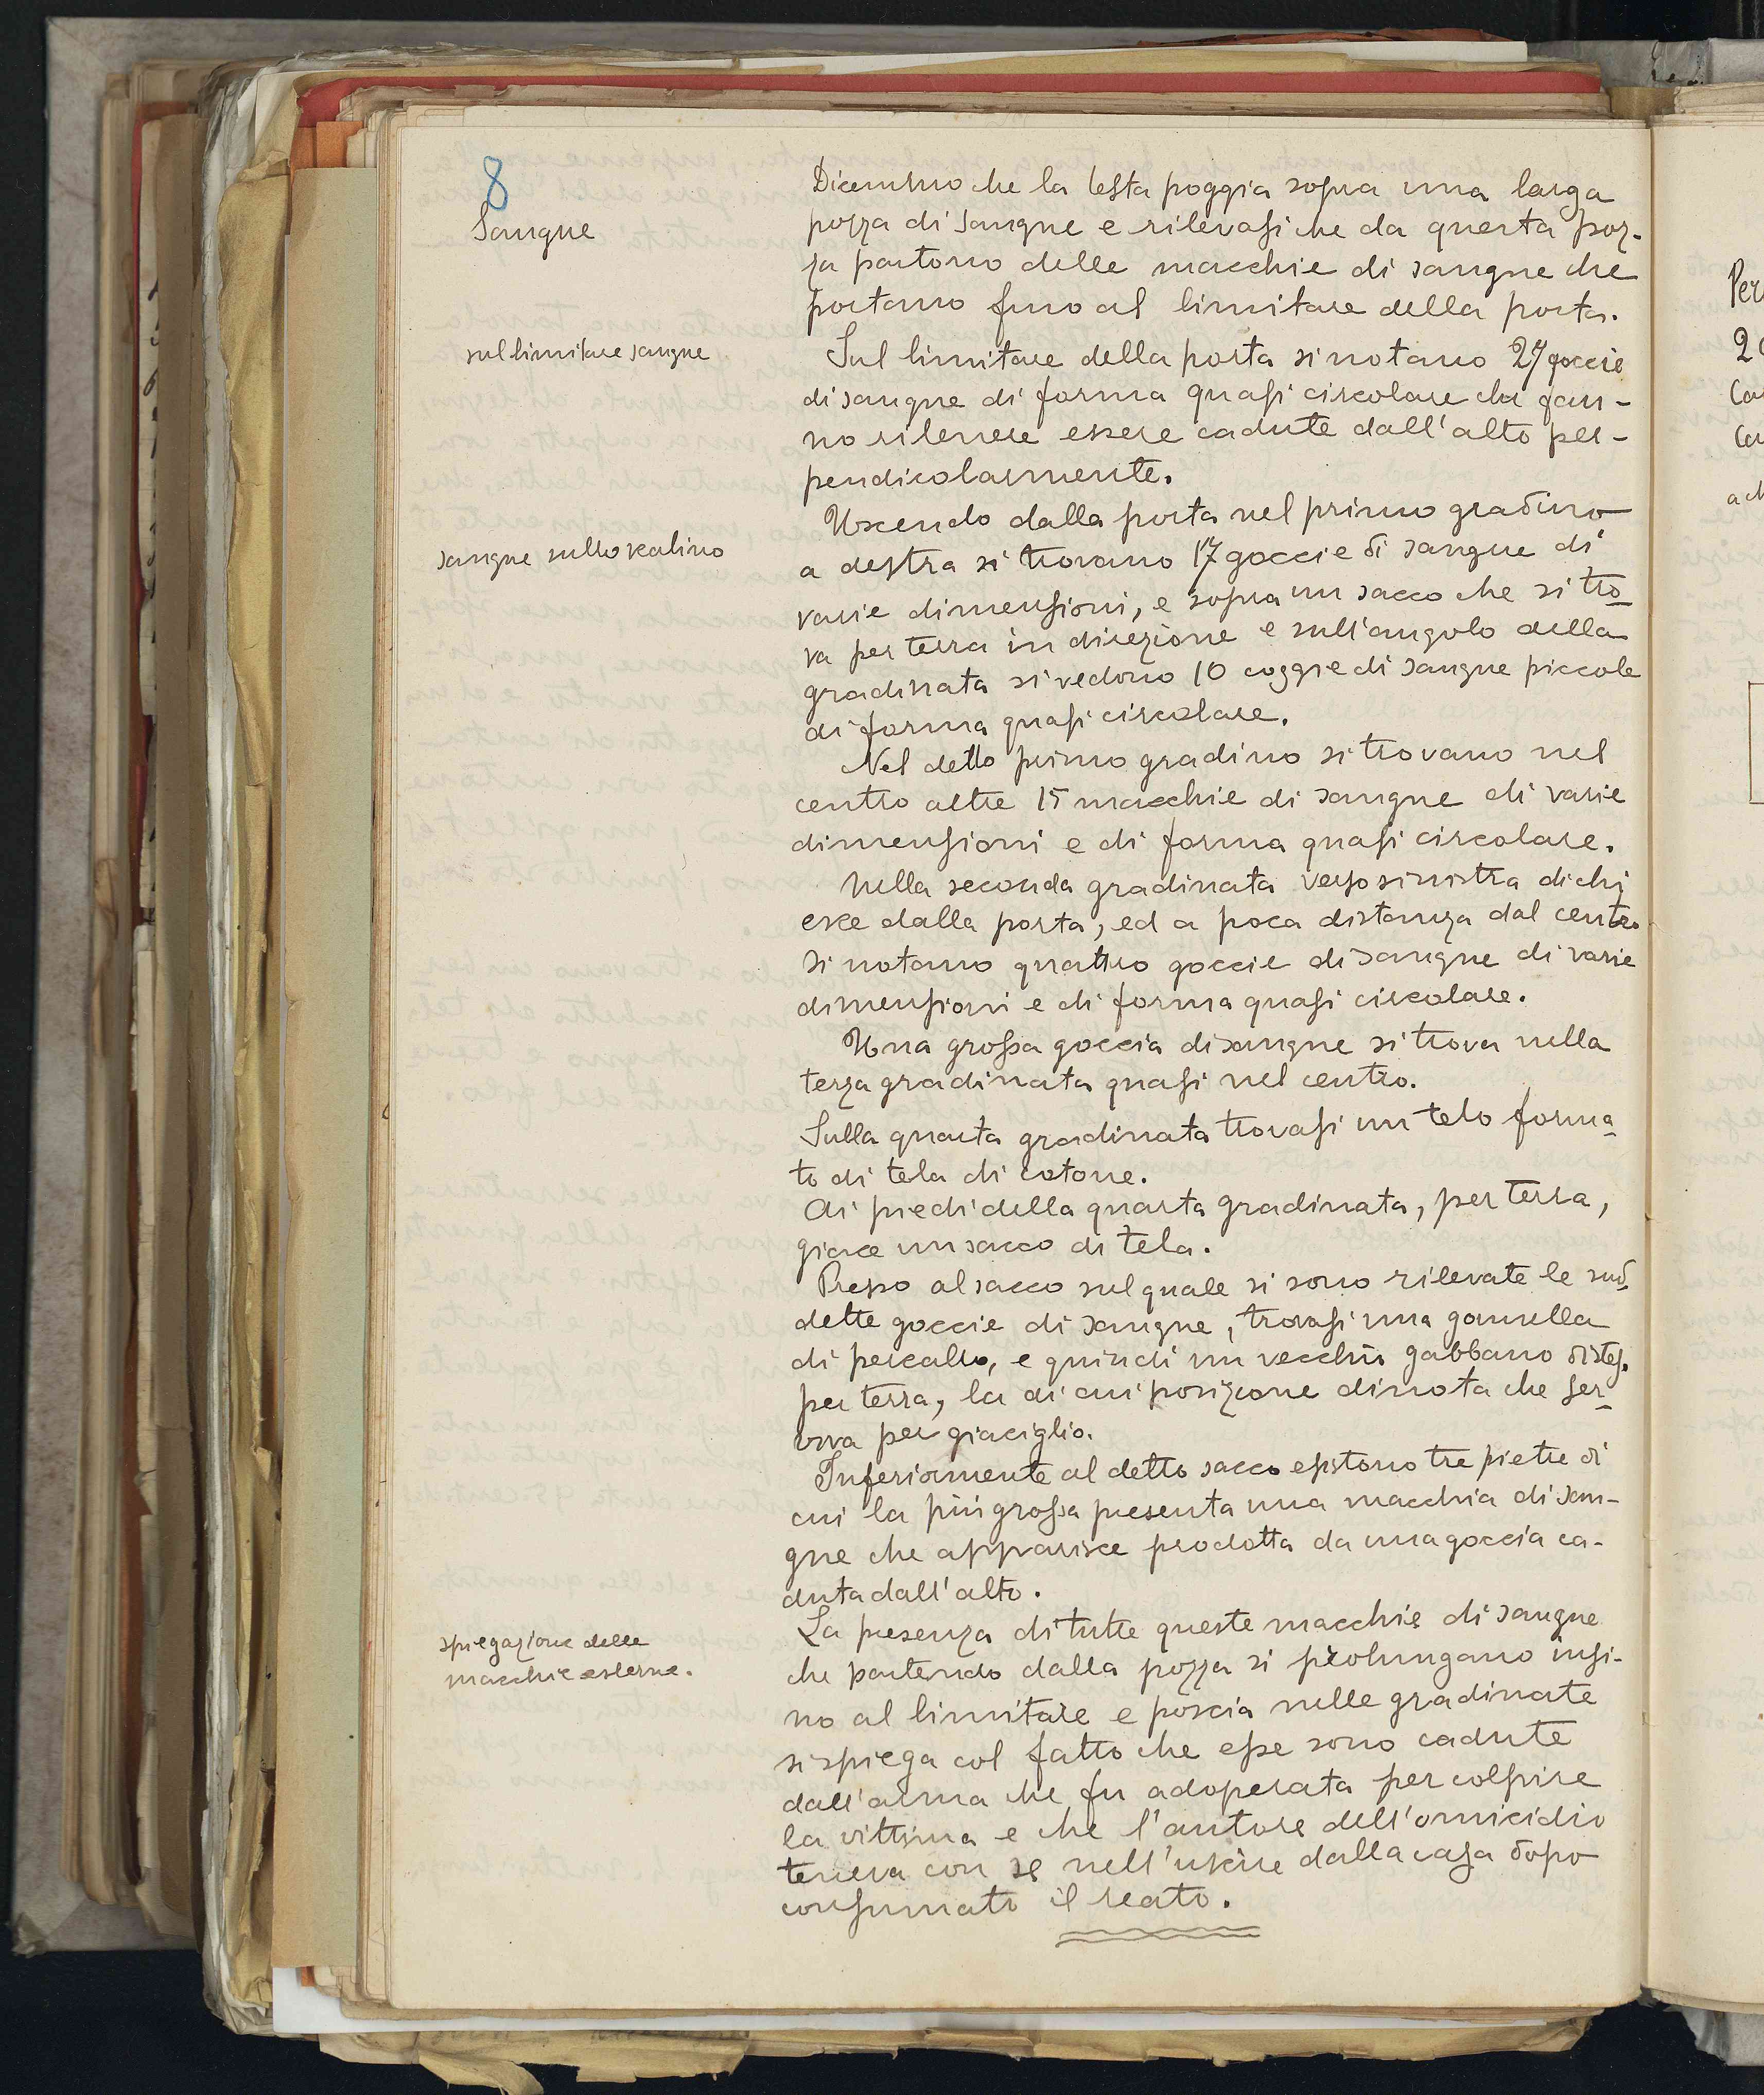 8
Sangue
Dicemmo che la testa poggia sopra una larga
pozza di sangue e rilevasi che da questa poz-
za partono delle macchie di sangue che
portano fino al limitare della porta.
sul limitare sangue
Sul limitare della porta si notano 27 goccie
di sangue di forma quasi circolare che fan-
no ritenere essere cadute dall'alto per-
pendicolarmente.
sangue sullo scalino
Uscendo dalla porta nel primo gradino
a destra si trovano 17 goccie di sangue di
varie dimensioni, e sopra un sacco che si tro-
va per terra in direzione e sull'angolo della
gradinata si vedono 10 coggie di sangue piccole
di forma quasi circolare.
Nel detto primo gradino si trovano nel
centro altre 15 macchie di sangue di varie
dimensioni e di forma quasi circolare.
Nella seconda gradinata verso sinistra di chi
esce dalla porta, ed a poca distanza dal centro
si notano quattro goccie di sangue di varie
dimensioni e di forma quasi circolare.
Una grossa goccia di sangue si trova nella
terza gradinata quasi nel centro.
Sulla quarta gradinata trovasi un telo forma-
to di tela di cotone.
Ai piedi della quarta gradinata, per terra,
giace un sacco di tela.
Presso al sacco sul quale si sono rilevate le sud-
dette goccie di sangue, trovasi una gonnella
di percallo, e quindi un vecchio gabbano disteso
per terra, la di cui posizione dinota che ser-
viva per giaciglio.
Inferiormente al detto sacco esistono tre pietre di
cui la più grossa presenta una macchia di san-
gue che apparisce prodotta da una goccia ca-
duta dall'alto.
spiegazione delle
macchie esterne.
La presenza di tutte queste macchie di sangue
che partendo dalla pozza si prolungano insi-
no al limitare e poscia nelle gradinate
si spiega col fatto che esse sono cadute
dall'arma che fu adoperata per colpire
la vittima e che l'autore dell'omicidio
teneva con se nell'uscire dalla casa dopo
consumato il reato.
Per
2
Ca
Ca